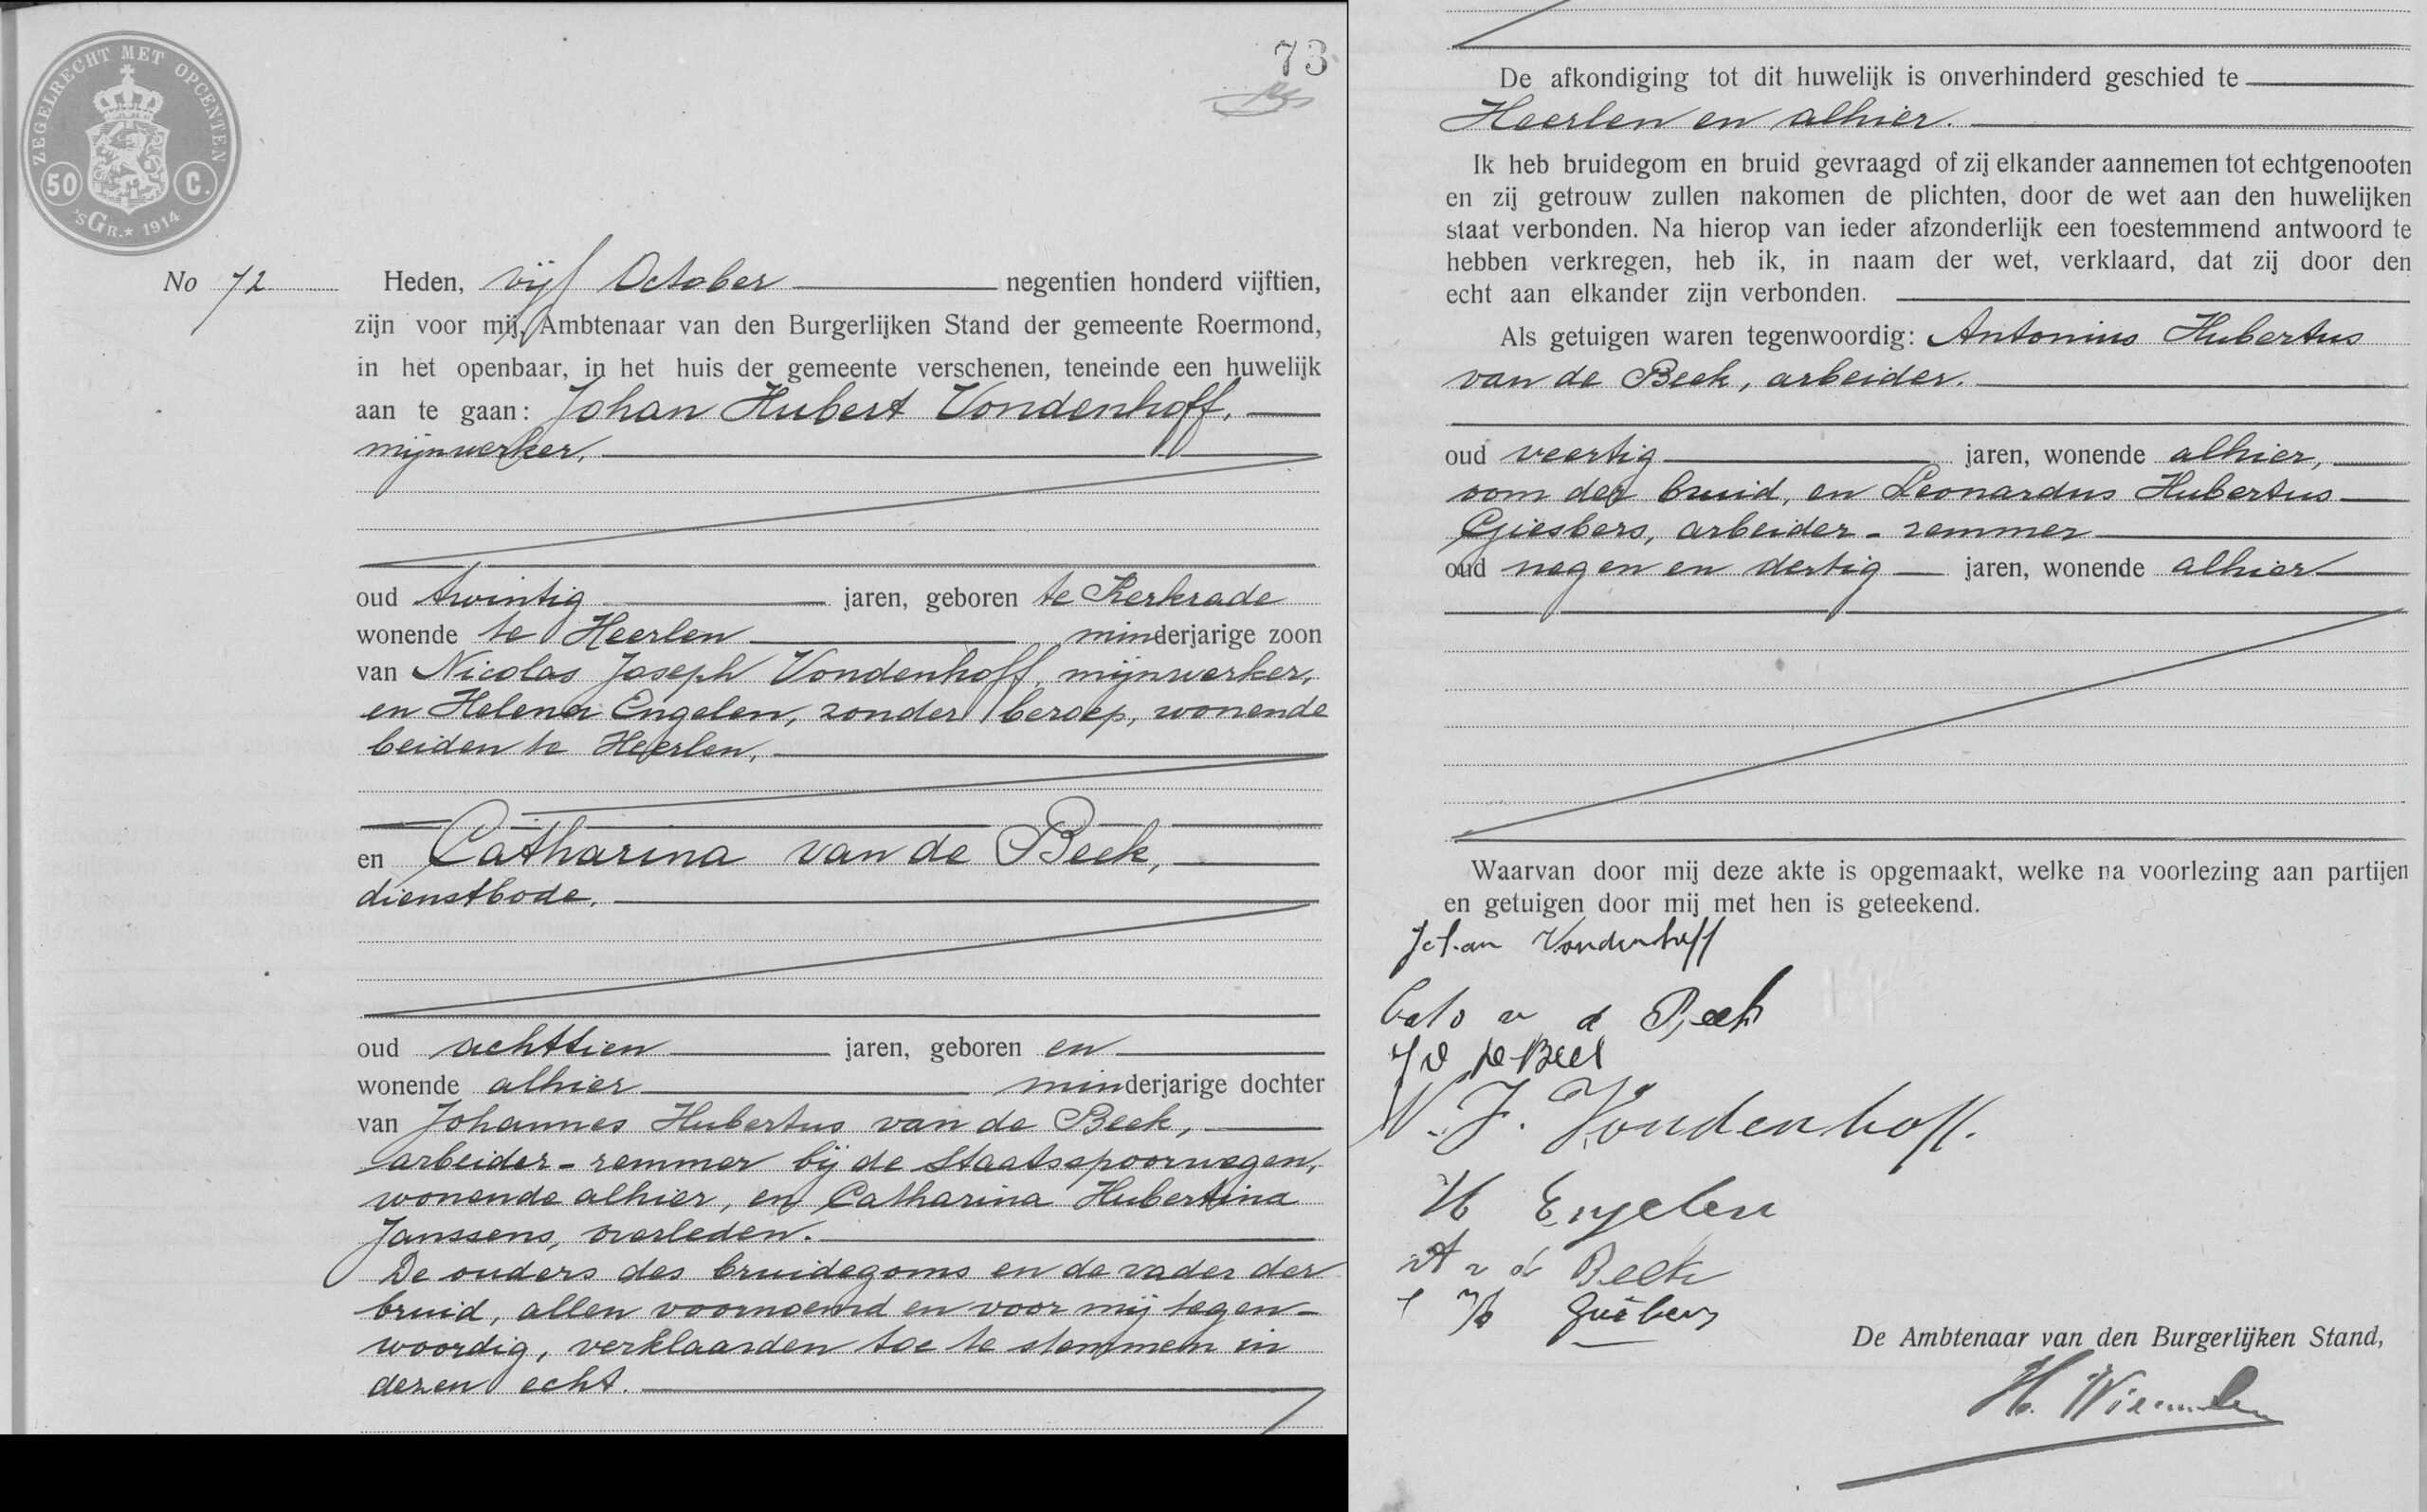 ZEGELRECHT MET OPCENTEN
50 C.
'sGR.★ 1914
73
No 72
Heden, vijf October negentien honderd vijftien,
zijn voor mij, Ambtenaar van den Burgerlijken Stand der gemeente Roermond,
in het openbaar, in het huis der gemeente verschenen, teneinde een huwelijk
aan te gaan: Johan Hubert Vondenhoff,
mijnwerker,
oud twintig jaren, geboren te Kerkrade
wonende te Heerlen minderjarige zoon
van Nicolas Joseph Vondenhoff, mijnwerker,
en Helena Engelen, zonder beroep, wonende
beiden te Heerlen,
en Catharina van de Beek,
dienstbode,
oud achttien jaren, geboren en
wonende alhier minderjarige dochter
van Johannes Hubertus van de Beek,
arbeider-remmer bij de Staatsspoorwegen,
wonende alhier, en Catharina Hubertina
Janssens, overleden.
De ouders des bruidegoms en de vader der
bruid, allen voornoemd en voor mij tegen-
woordig, verklaarden toe te stemmen in
dezen echt.
De afkondiging tot dit huwelijk is onverhinderd geschied te
Heerlen en alhier.
Ik heb bruidegom en bruid gevraagd of zij elkander aannemen tot echtgenooten
en zij getrouw zullen nakomen de plichten, door de wet aan den huwelijken
staat verbonden. Na hierop van ieder afzonderlijk een toestemmend antwoord te
hebben verkregen, heb ik, in naam der wet, verklaard, dat zij door den
echt aan elkander zijn verbonden.
Als getuigen waren tegenwoordig: Antonius Hubertus
van de Beek, arbeider.
oud veertig jaren, wonende alhier,
oom der bruid, en Leonardus Hubertus
Giesbers, arbeider-remmer
oud negen en dertig jaren, wonende alhier
Waarvan door mij deze akte is opgemaakt, welke na voorlezing aan partijen
en getuigen door mij met hen is geteekend.
Johan Vondenhoff
Cato v d Beek
J v de Beek
N. J. Vondenhoff.
H Engelen
A v d Beek
Giesbers
De Ambtenaar van den Burgerlijken Stand,
H.